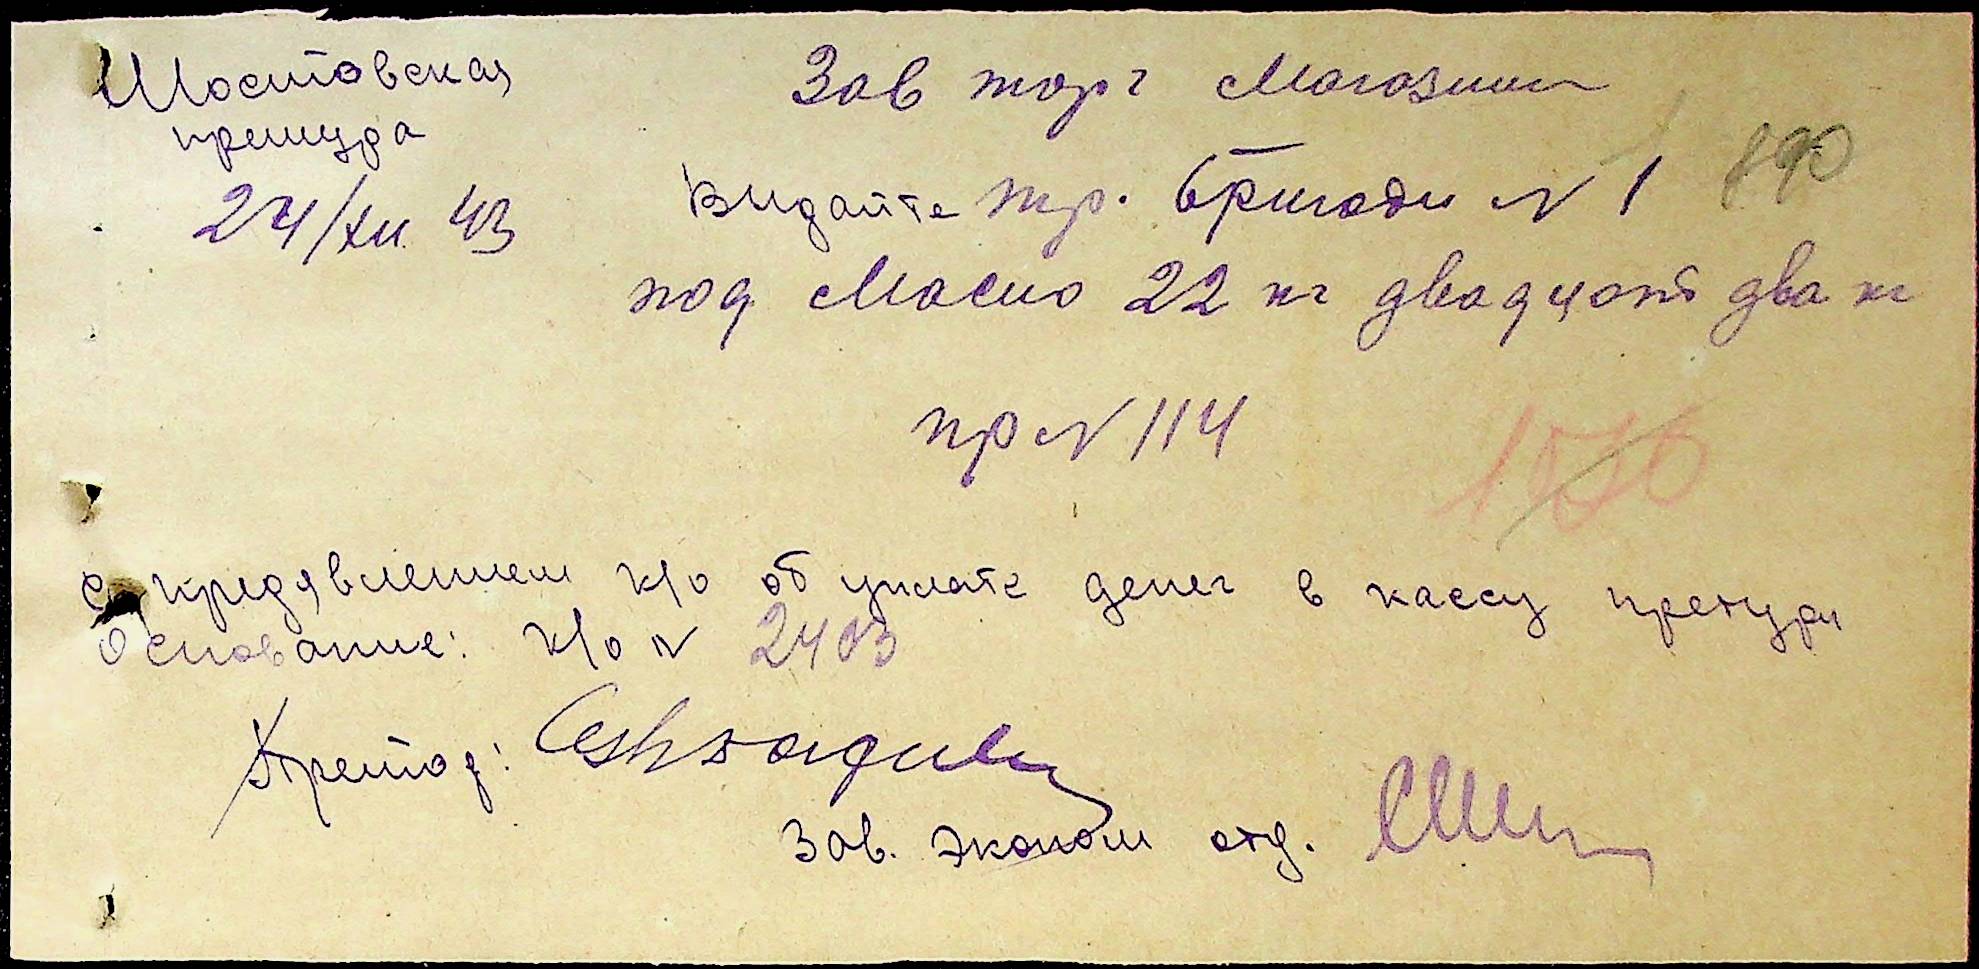 Мостовская
претура
24/XII 43
Зав торг Магазином
Видайте тр. Бригади № 1
под Масло 22 кг двадцать два кг
пр № 114
С предявлением к/о об уплате денег в кассу претури
Основание: к/о № 2403
Претор:
Зав. эконом отд.